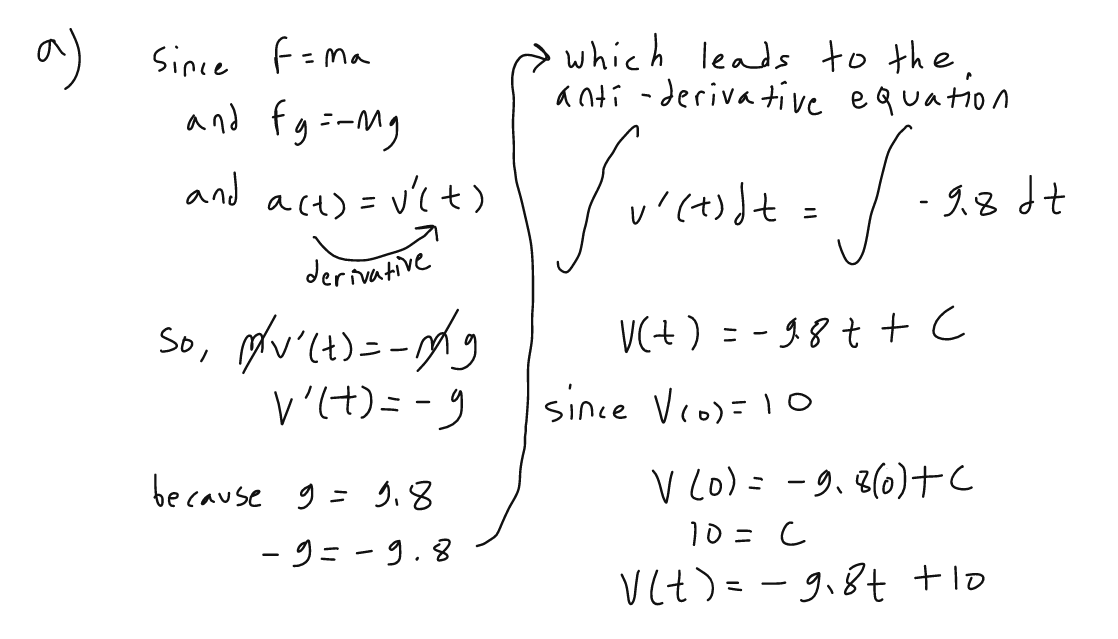 a)
since f = ma
and fg = -mg
and a(t) = v'(t)
derivative
So, mv'(t) = -mg
v'(t) = -g
because g = 9.8
-g = -9.8
which leads to the
anti-derivative equation
∫ v'(t)dt = ∫ -9.8 dt
V(t) = -9.8t + C
since V(0) = 10
V(0) = -9.8(0)+C
10 = C
V(t) = -9.8t +10